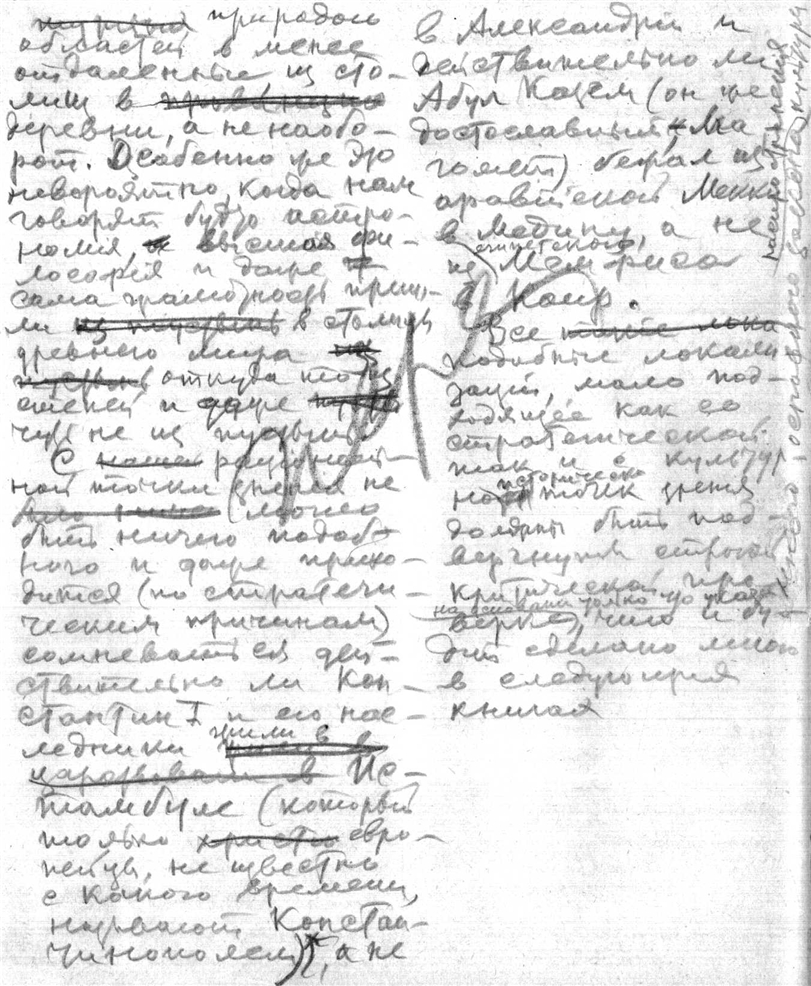 природою
областей в менее
отдаленные из сто-
лиц в провинцию
деревни, а не наобо-
рот. Особенно же это
невероятно, когда нам
говорят будто астро-
номия, и высшая фи-
лософия и даже
сама грамотность приш-
ли из пустынь в столицы
древнего мира из
пустынь, откуда то из
степей и даже
чуть не из пустынь
С нашей рациональ-
ной точки зрения не
(можно
быть ничего подоб-
ного и даже прихо-
дится (по стратеги-
ческим причинам)
сомневаться дей-
ствительно ли Кон-
стантин I и его нас-
ледники жили в
царствовали в Ис-
тамбуле (который
только христиа евро-
пейцы, не известно
с какого времени,
называют Констан-
тинополем), а не
в Александрии и
действительно ли
Абул Казем (он же
достославный = Ма
гомет) бежал из
аравийской Мекки
в Медину, а не
из египетского
Мемфиса
в Каир.
Все такие лока
подобные локали
заций, мало под-
ходящее как со
стратегической
так и с культур
но исторической точек зрения
должны быть под-
вергнуты строгой
критической про-
верке, что и бу-
дет сделано мною
в следующих
книгах